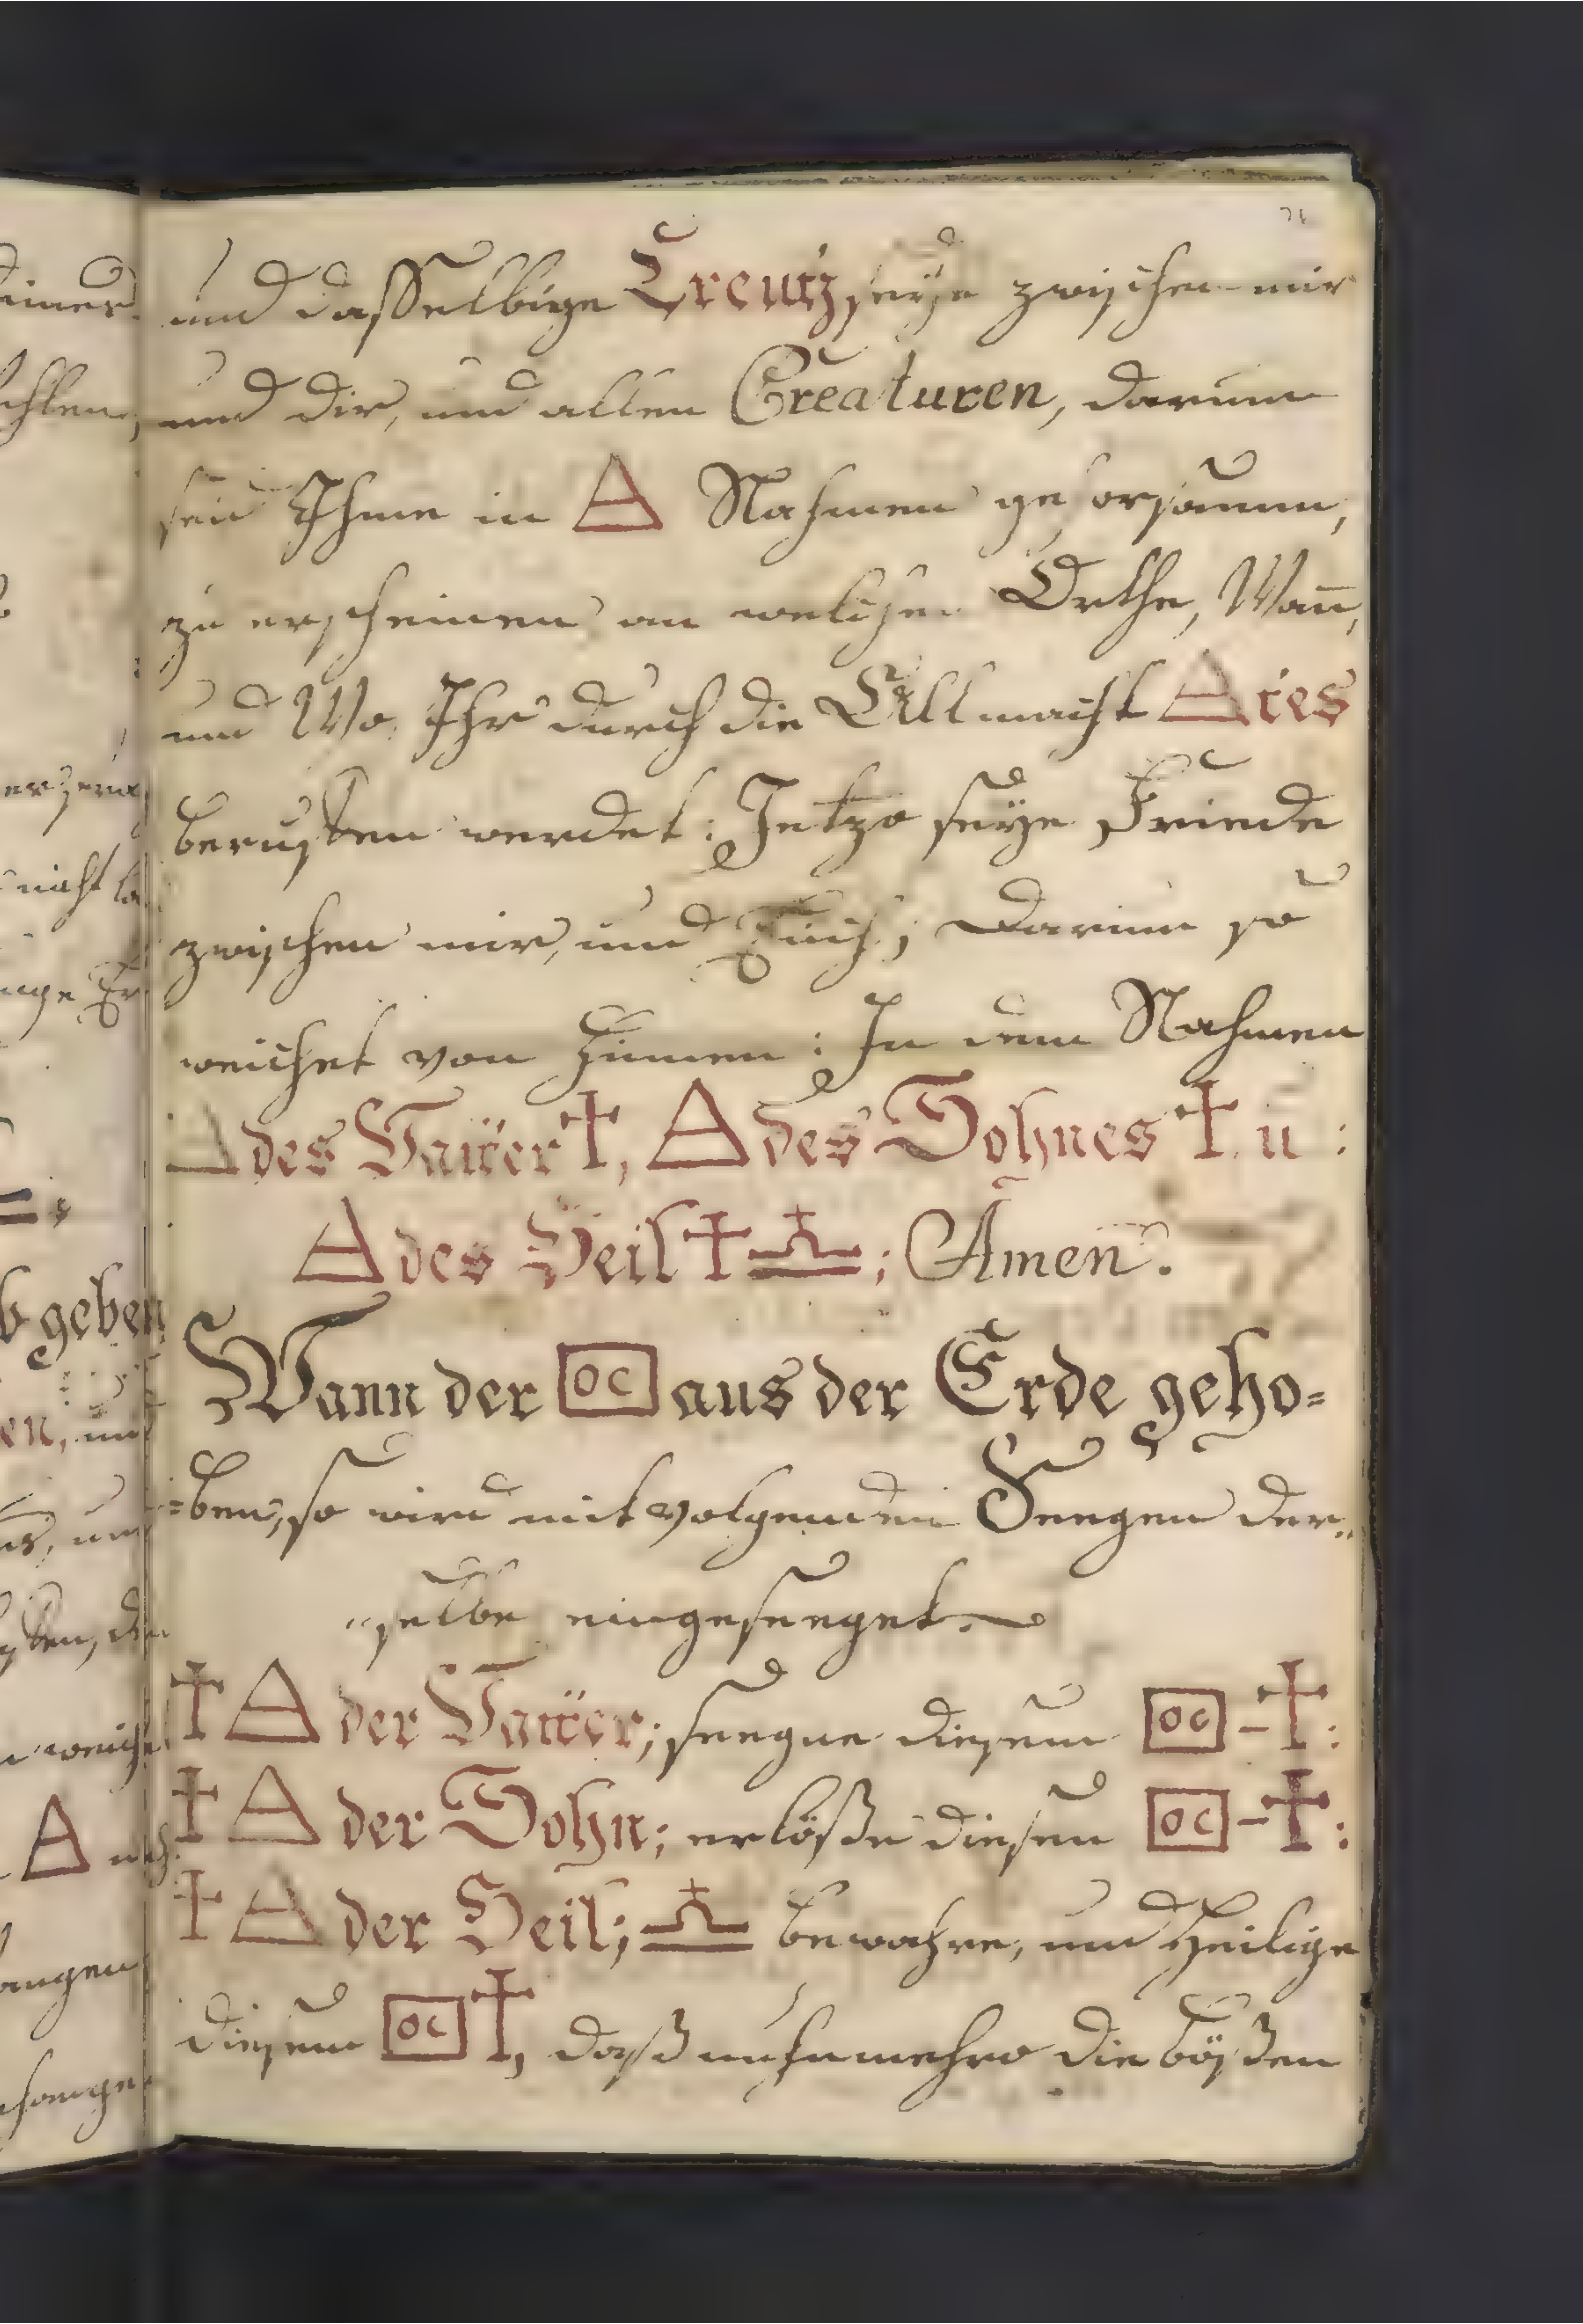 und dasselbige Creutz, seÿe zwischen mir
und dir, und allen Creaturen, darum
seid Ihme in 🜁 Nahmen gehorsamm,
zu erscheinen an welchen Orthe, Wan̄,
und Wo Ihr durch die Allmacht 🜁tes
beruffen werdet: Jetzo seÿe Friede
zwischen mir, und Euch; Darum so
weichet von hinnen: In dem Nahmen
🜁 des Vatter ✝, 🜁 des Sohnes ✝ u:
🜁 des Heil ✝ ♎; Amen.
Wann der OC aus der Erde geho=
=ben, so wird mit volgenden Seegen der„
„selbe eingeseeget.
✝ 🜁 der Vatter; seegne diesen OC - ✝:
✝ 🜁 der Sohn; erlöße diesen OC - ✝:
✝ 🜁 der Heil; ♎ bewahre, und Heilige
diesen OC ✝, daß nuhnmehro die bößen